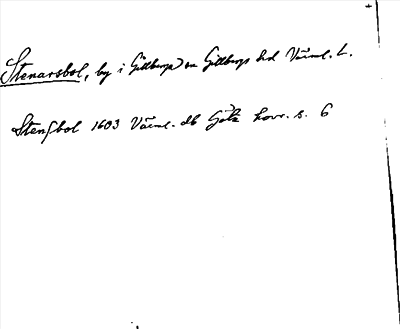 Stenarsbol, by i Gillberga sn Gillbergs hd Värml. L.
Stensbol 1603 Värml. db Göta hovr. s. 6